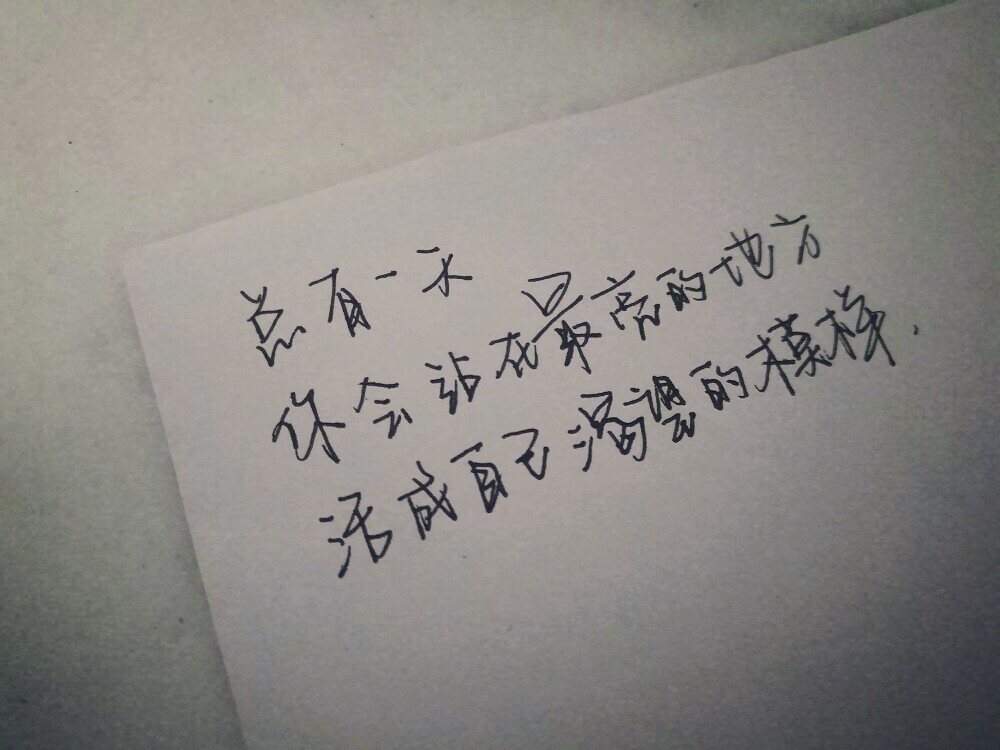 总有一天
你会站在最高的地方
活成自己渴望的模样.